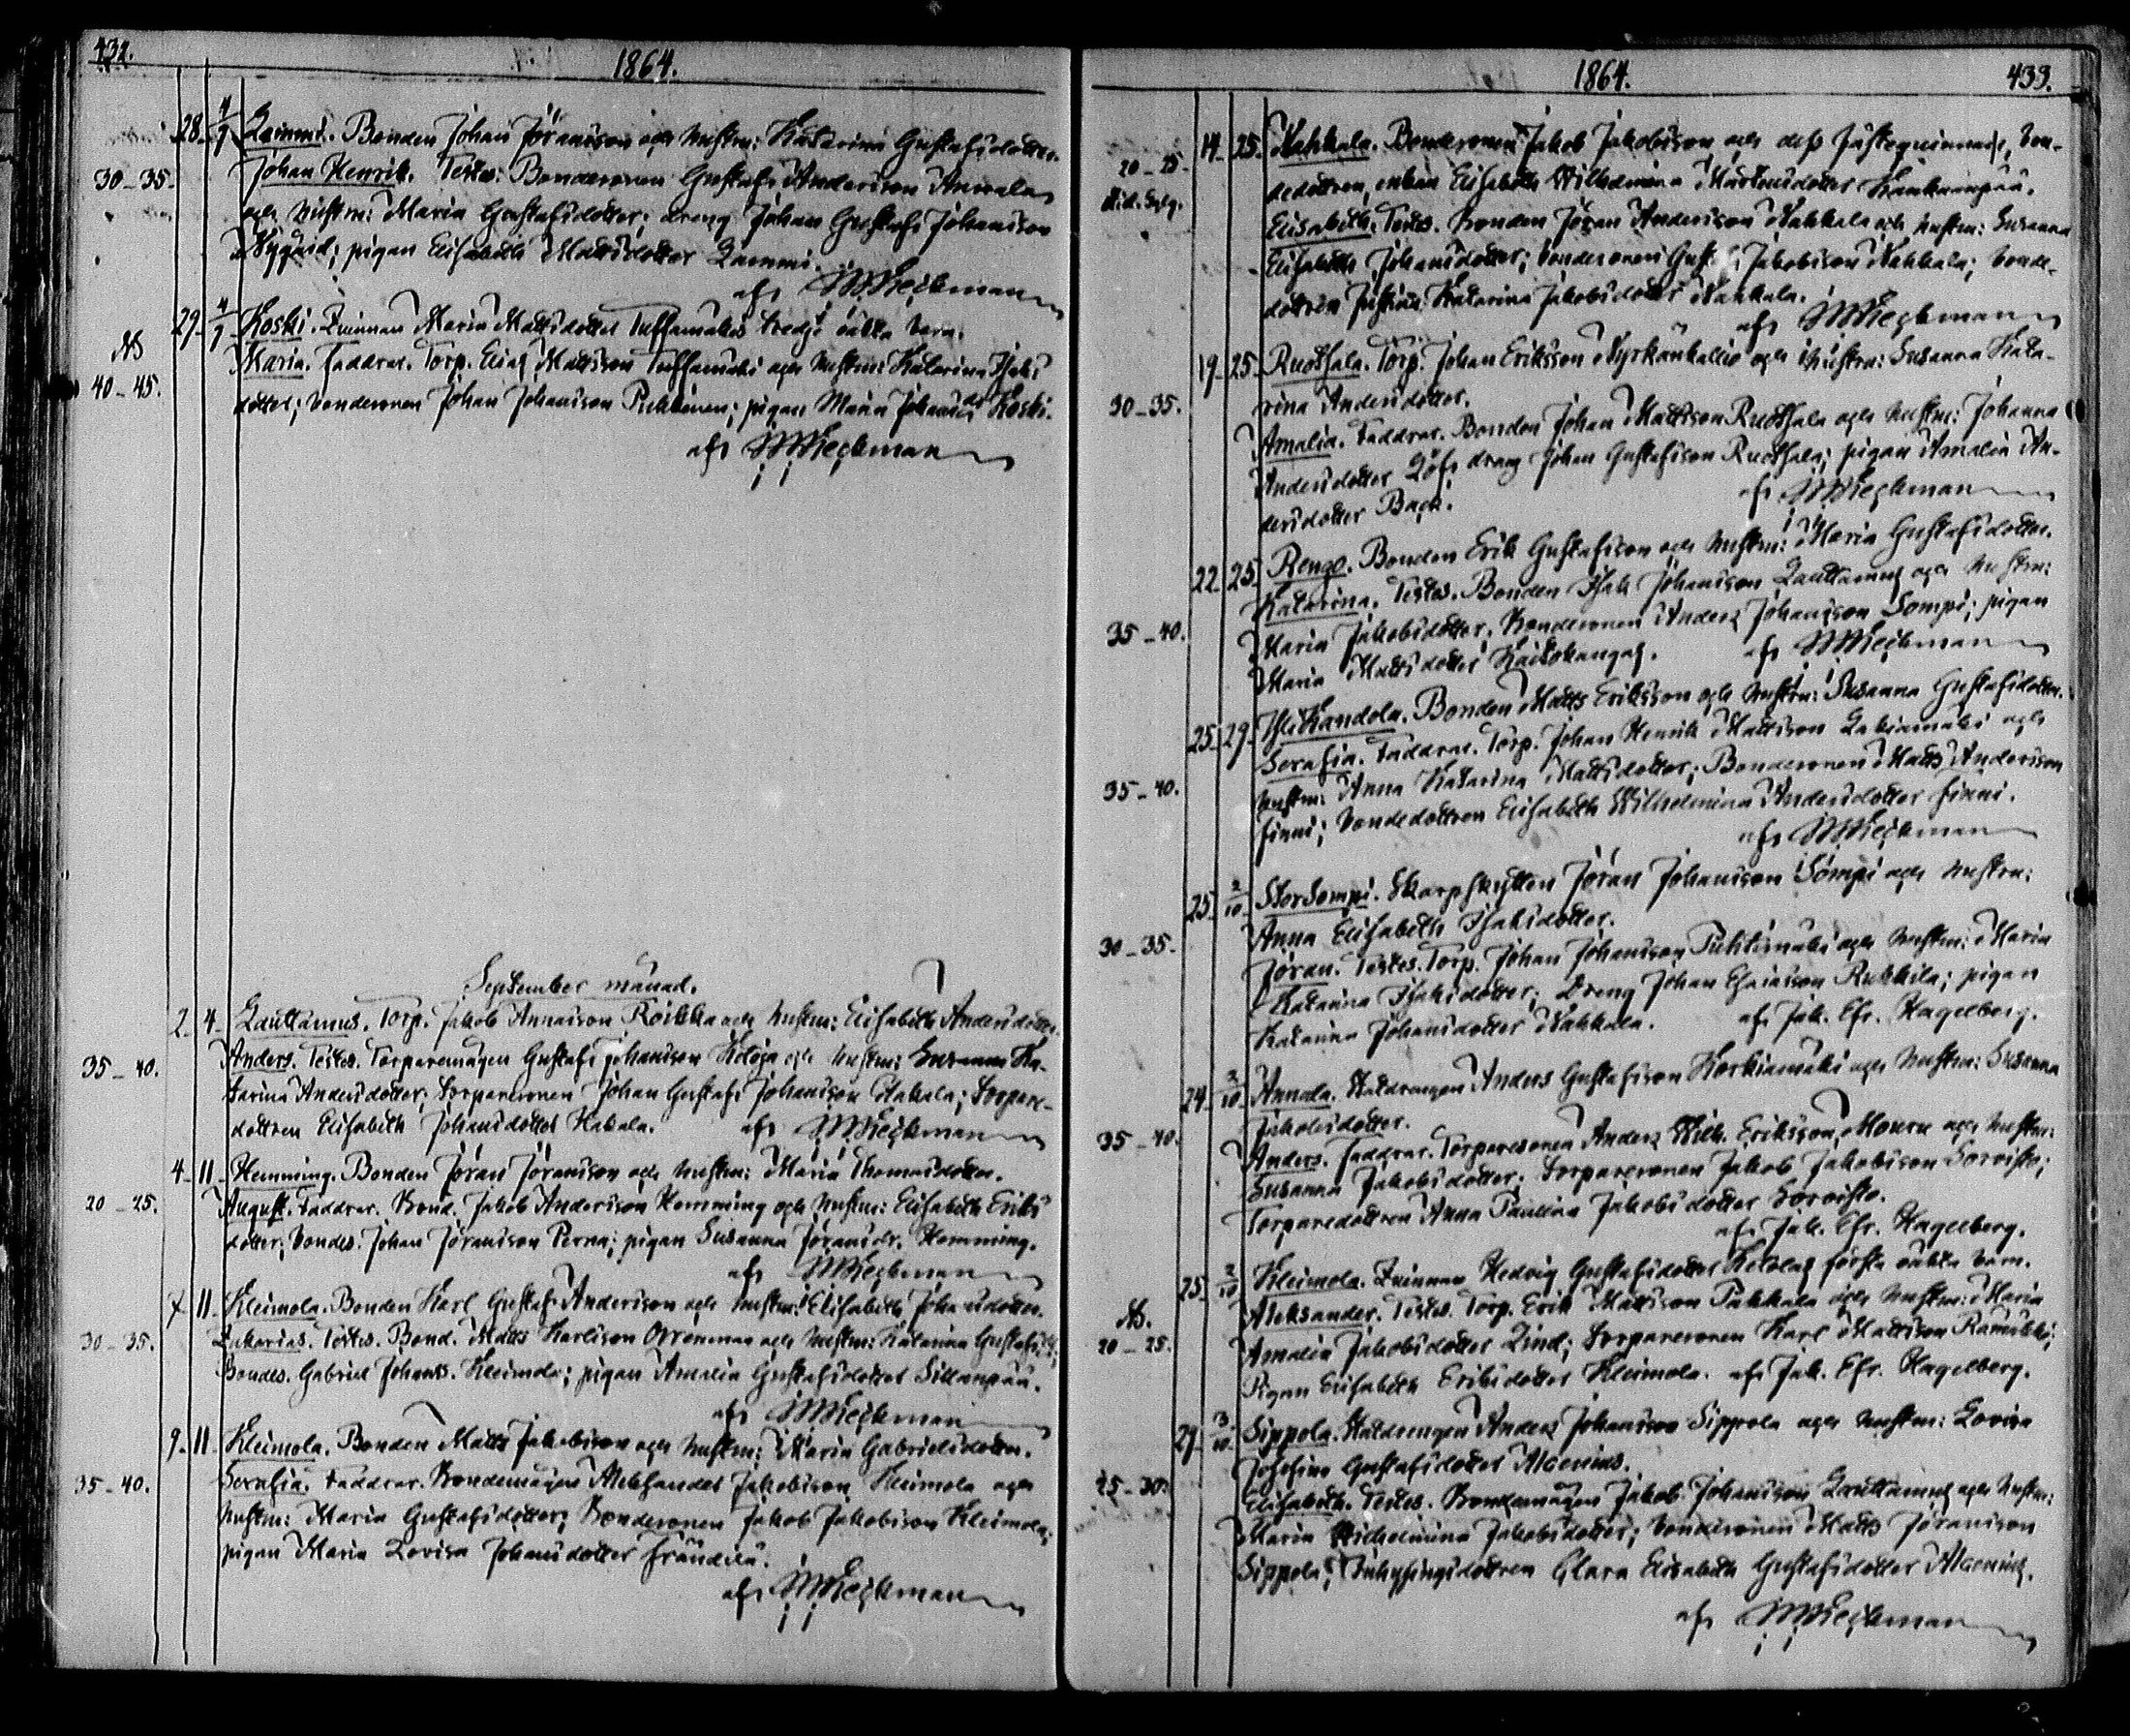 432.
1864.
28. 4/9 Lammi. Bonden Johan Jöransson och hustru: Katarina Gustafsdotter.
30-35. Johan Henrik. Testes: Bondesonen Gustaf Andersson Annala
och hustru: Maria Gustafsdotter; dreng Johan Gustaf Johansson
Nygård; pigan Elisabeth Mattsdotter Lammi.
af
29. 4/9 Koski. Qvinnan Maria Mattsdotter tredje oäkta barn.
40-45. Maria. Faddrar. Torp. Elias Mattsson och hustru: Katarina Isaks
dotter; bondesonen Johan Johansson; pigan Maria Johansdr Koski.
af
September månad.
2. 4. Lauttamus. Torp. Jakob Annaisson Röikka och hustru: Elisabeth Andersdotter.
35-40. Anders. Testes. Torparemågen Gustaf Johansson och hustru: Susanna Ka-
tarina Andersdotter; torparesonen Johan Gustaf Johansson Hakala; torpare-
dottren Elisabeth Johansdotter Hakala. af
4. 11. Hemming. Bonden Jöran Jöransson och hustru: Maria Thomasdotter.
20-25. August. Faddrar. Bond. Jakob Andersson Hemming och hustru: Elisabeth Eriks
dotter; bondes. Johan Jöransson Perna; pigan Susanna Jöransdr. Hemming.
af
7. 11. Kleimola. Bonden Karl Gustaf Andersson och hustru: Elisabeth Johansdotter.
30-35. Zakarias. Testes. Bond. Matts Karlsson Orrenmaa och hustru: Katarina Gustafsd.;
Bondes. Gabriel Johanss. Kleimola; pigan Amalia Gustafsdotter Sillanpää.
af
9. 11. Kleimola. Bonden Matts Jakobsson och hustru: Maria Gabrielsdotter.
35-40. Serafia. Faddrar. Bondemågen Aleksander Jakobsson Kleimola och
hustru: Maria Gustafsdotter; Bondesonen Jakob Jakobsson Kleimola;
pigan Maria Lovisa Johansdotter Frändilä.
af
1864.
433.
14. 25. Nahkala. Bondesonen Jakob Jakobsson och dess fästeqvinna, bon-
20-25. dedottren, enkan Elisabeth Wilhelmina Kankaanpää.
Elisabeth. Testes. Bonden Jöran Andersson Nahkala och hustru: Susanna
Elisabeth Johansdotter; bondesonen Gustaf Jakobsson Nahkala; bonde-
dottren Katarina Jakobsdotter Nahkala.
af
19. 25. Ruotsala. Torp. Johan Eriksson Kyrkönkallio och hustru: Susanna Kata-
30-35. rina Andersdotter.
Amalia. Faddrar. Bonden Johan Mattsson Ruotsala och hustru: Johanna
Andersdotter Löf; dreng Johan Gustafsson Ruotsala; pigan Amalia An-
dersdotter Back. af
22. 25. Rengo. Bonden Erik Gustafsson och hustru: Maria Gustafsdotter.
35-40. Katarina. Testes. Bonden Isak Johansson Lauttamus och hustru:
Maria Jakobsdotter. Bondesonen Anders Johansson Sompi; pigan
Maria Mattsdotter Kaitokangas. af
25. 29. Yli Kandola. Bonden Matts Eriksson och hustru: Susanna Gustafsdotter.
35-40. Serafia. Faddrar. Torp. Johan Henrik Mattsson Lakiamäki och
hustru: Anna Katarina Mattsdotter; Bondesonen Matts Andersson
Finni; bondedottren Elisabeth Wilhelmina Andersdotter Finni.
af
25. 2/10 Storsompi. Skarpskytten Jöran Johansson Sompi och hustru:
30-35. Anna Elisabeth Isaksdotter.
Jöran. Testes. Torp. Johan Johansson och hustru: Maria
Katarina Isaksdotter; Dreng Johan Ruhkila; pigan
Katarina Johansdotter Nahkala. af Jak. Efr. Hagelberg.
24. 2/10 Annala. Statdrengen Anders Gustafsson Korkiamäki och hustru: Susanna
35-40. Jakobsdotter.
Anders. Faddrar. Torparesonen Anders Wilh. Eriksson och hustru:
Susanna Jakobsdotter; torparesonen Jakob Jakobsson Sorvisto;
Torparedottren Anna Paulina Jakobsdotter Sorvisto.
af Jak. Efr. Hagelberg.
25. 2/10 Kleimola. Qvinnan Hedvig Gustafsdotter Ketolas första oäkta barn.
20-25. Aleksander. Testes. Torp. Erik Mattsson Pukkala och hustru: Maria
Amalia Jakobsdotter Lind; torparesonen Karl Mattsson;
Pigan Elisabeth Eriksdotter Kleimola. af Jak. Efr. Hagelberg.
29. 3/10 Sippola. Statdrengen Anders Johansson Sippola och hustru: Lovisa
25-30. Josefina Gustafsdotter Alcenius.
Elisabeth. Testes. Bondemågen Jakob Johansson Lauttamus och hustru:
Maria Wilhelmina Jakobsdotter; bondesonen Matts Jöransson
Sippola; Inhysingsdottren Clara Elisabeth Gustafsdotter Alcenius.
af